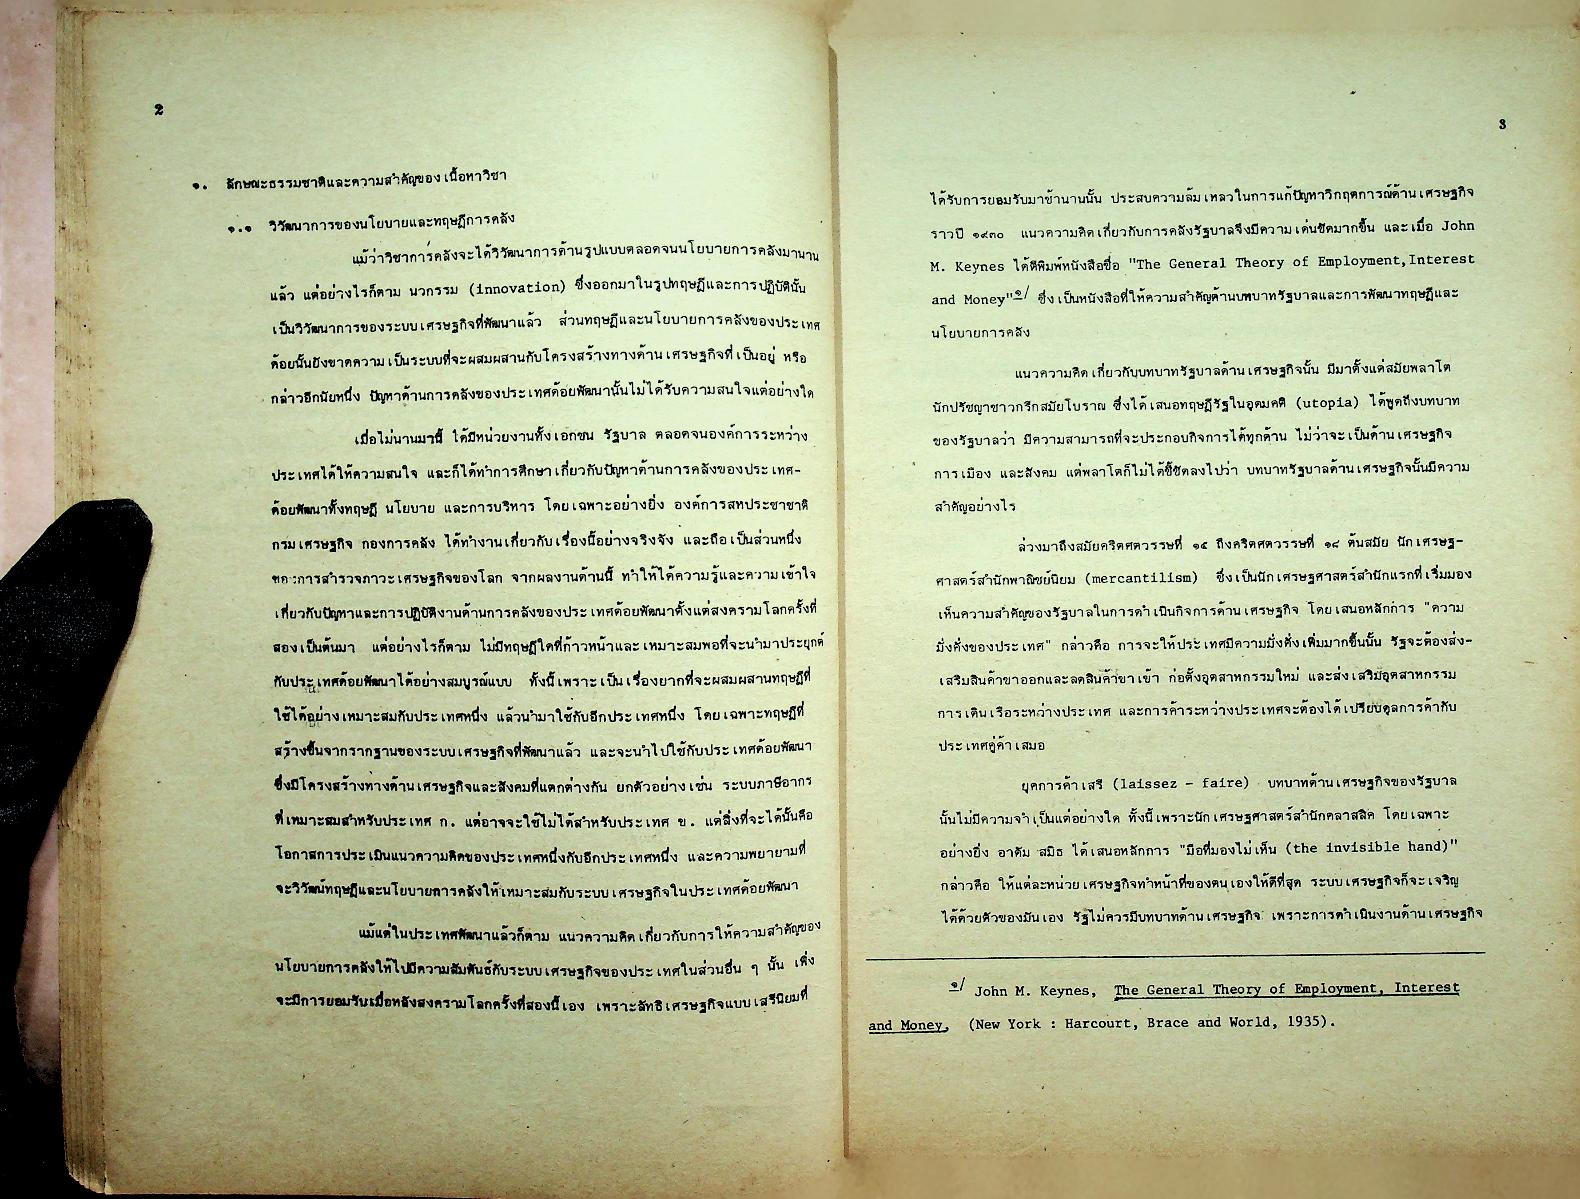 2
๑. ลักษณะธรรมชาติและความสำคัญของเนื้อหาวิชา
๑.๑ วิวัฒนาการของนโยบายและทฤษฎีการคลัง
แม้ว่าวิชาการคลังจะได้วิวัฒนาการด้านรูปแบบตลอดจนนโยบายการคลังมานาน
แล้ว แต่อย่างไรก็ตาม นวกรรม (innovation) ซึ่งออกมาในรูปทฤษฎีและการปฏิบัตินั้น
เป็นวิวัฒนาการของระบบเศรษฐกิจที่พัฒนาแล้ว ส่วนทฤษฎีและนโยบายการคลังของประเทศ
ด้อยนั้นยังขาดความเป็นระบบที่จะผสมผสานกับโครงสร้างทางด้านเศรษฐกิจที่เป็นอยู่ หรือ
กล่าวอีกนัยหนึ่ง ปัญหาด้านการคลังของประเทศด้อยพัฒนานั้นไม่ได้รับความสนใจแต่อย่างใด
เมื่อไม่นานมานี้ ได้มีหน่วยงานทั้งเอกชน รัฐบาล ตลอดจนองค์การระหว่าง
ประเทศได้ให้ความสนใจ และก็ได้ทำการศึกษาเกี่ยวกับปัญหาด้านการคลังของประเทศ-
ด้อยพัฒนาทั้งทฤษฎี นโยบาย และการบริหาร โดยเฉพาะอย่างยิ่ง องค์การสหประชาชาติ
กรมเศรษฐกิจ กองการคลัง ได้ทำงานเกี่ยวกับเรื่องนี้อย่างจริงจัง และถือเป็นส่วนหนึ่ง
ของการสำรวจภาวะเศรษฐกิจของโลก จากผลงานด้านนี้ ทำให้ได้ความรู้และความเข้าใจ
เกี่ยวกับปัญหาและการปฏิบัติงานด้านการคลังของประเทศด้อยพัฒนาตั้งแต่สงครามโลกครั้งที่
สองเป็นต้นมา แต่อย่างไรก็ตาม ไม่มีทฤษฎีใดที่ก้าวหน้าและเหมาะสมพอที่จะนำมาประยุกต์
กับประเทศด้อยพัฒนาได้อย่างสมบูรณ์แบบ ทั้งนี้เพราะเป็นเรื่องยากที่จะผสมผสานทฤษฎีที่
ใช้ได้อย่างเหมาะสมกับประเทศหนึ่ง แล้วนำมาใช้กับอีกประเทศหนึ่ง โดยเฉพาะทฤษฎีที่
สร้างขึ้นจากรากฐานของระบบเศรษฐกิจที่พัฒนาแล้ว และจะนำไปใช้กับประเทศด้อยพัฒนา
ซึ่งมีโครงสร้างทางด้านเศรษฐกิจและสังคมที่แตกต่างกัน ยกตัวอย่างเช่น ระบบภาษีอากร
ที่เหมาะสมสำหรับประเทศ ก. แต่อาจจะใช้ไม่ได้สำหรับประเทศ ข. แต่สิ่งที่จะได้นั้นคือ
โอกาสการประเมินแนวความคิดของประเทศหนึ่งกับอีกประเทศหนึ่ง และความพยายามที่
จะวิวัฒน์ทฤษฎีและนโยบายการคลังให้เหมาะสมกับระบบเศรษฐกิจในประเทศด้อยพัฒนา
แม้แต่ในประเทศพัฒนาแล้วก็ตาม แนวความคิดเกี่ยวกับการให้ความสำคัญของ
นโยบายการคลังให้ไปมีความสัมพันธ์กับระบบเศรษฐกิจของประเทศในส่วนอื่น ๆ นั้น เพิ่ง
จะมีการยอมรับเมื่อหลังสงครามโลกครั้งที่สองนี้เอง เพราะลัทธิเศรษฐกิจแบบเสรีนิยมที่
3
ได้รับการยอมรับมาช้านานนั้น ประสบความล้มเหลวในการแก้ปัญหาวิกฤตการณ์ด้านเศรษฐกิจ
ราวปี ๑๙๓๐ แนวความคิดเกี่ยวกับการคลังรัฐบาลจึงมีความเด่นชัดมากขึ้น และเมื่อ John
M. Keynes ได้ตีพิมพ์หนังสือชื่อ "The General Theory of Employment,Interest
and Money"๑/ ซึ่งเป็นหนังสือที่ให้ความสำคัญด้านบทบาทรัฐบาลและการพัฒนาทฤษฎีและ
นโยบายการคลัง
แนวความคิดเกี่ยวกับบทบาทรัฐบาลด้านเศรษฐกิจนั้น มีมาตั้งแต่สมัยพลาโต
นักปรัชญาชาวกรีกสมัยโบราณ ซึ่งได้เสนอทฤษฎีรัฐในอุดมคติ (utopia) ได้พูดถึงบทบาท
ของรัฐบาลว่า มีความสามารถที่จะประกอบกิจการได้ทุกด้าน ไม่ว่าจะเป็นด้านเศรษฐกิจ
การเมือง และสังคม แต่พลาโตก็ไม่ได้ชี้ชัดลงไปว่า บทบาทรัฐบาลด้านเศรษฐกิจนั้นมีความ
สำคัญอย่างไร
ล่วงมาถึงสมัยคริตศตวรรษที่ ๑๕ ถึงคริตศตวรรษที่ ๑๘ ต้นสมัย นักเศรษฐ-
ศาสตร์สำนักพาณิชย์นิยม (mercantilism) ซึ่งเป็นนักเศรษฐศาสตร์สำนักแรกที่เริ่มมอง
เห็นความสำคัญของรัฐบาลในการดำเนินกิจการด้านเศรษฐกิจ โดยเสนอหลักการ "ความ
มั่งคั่งของประเทศ" กล่าวคือ การจะให้ประเทศมีความมั่งคั่งเพิ่มมากขึ้นนั้น รัฐจะต้องส่ง-
เสริมสินค้าขาออกและลดสินค้าขาเข้า ก่อตั้งอุตสาหกรรมใหม่ และส่งเสริมอุตสาหกรรม
การเดินเรือระหว่างประเทศ และการค้าระหว่างประเทศจะต้องได้เปรียบดุลการค้ากับ
ประเทศคู่ค้าเสมอ
ยุคการค้าเสรี (laissez - faire) บทบาทด้านเศรษฐกิจของรัฐบาล
นั้นไม่มีความจำเป็นแต่อย่างใด ทั้งนี้เพราะนักเศรษฐศาสตร์สำนักคลาสสิค โดยเฉพาะ
อย่างยิ่ง อาดัม สมิธ ได้เสนอหลักการ "มือที่มองไม่เห็น (the invisible hand)"
กล่าวคือ ให้แต่ละหน่วยเศรษฐกิจทำหน้าที่ของตนเองให้ดีที่สุด ระบบเศรษฐกิจก็จะเจริญ
ได้ด้วยตัวของมันเอง รัฐไม่ควรมีบทบาทด้านเศรษฐกิจ เพราะการดำเนินงานด้านเศรษฐกิจ
๑/ John M. Keynes, The General Theory of Employment, Interest
and Money, (New York : Harcourt, Brace and World, 1935).